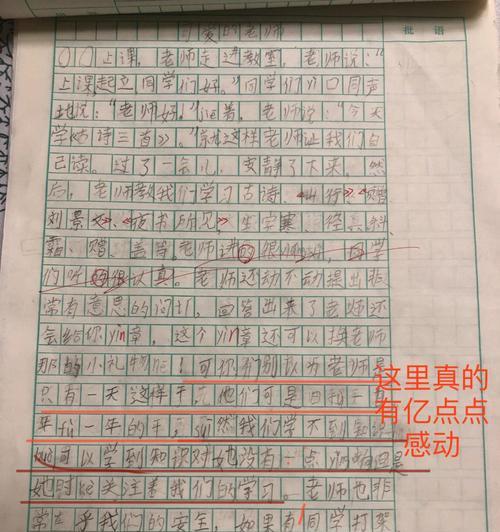 可爱的老师
批语
〇〇上课，老师走进教室，老师说："
上课起立同学们好。"同学们们口同声
地说："老师好。"接着，老师说："今天
学《古诗三首》。"就这样老师让我们自
己读。过了一会儿，安静了下来。然
后，老师教我们学习古诗、《山行》、《赠
刘景文》、《夜书所见》，生字寒、径、斜、
霜、赠、盖等。老师讲的很，同学
们听的很认真。老师还动不动提出非
常有意思的问打，回答出来了老师还
会给你yin章，这个yin章还可以换老师
那的小礼物呢！可你们别以为老师是
只有一天这样干，他们可是日
年fù一年的干，虽然我们学不到知识
她可以学到知识对她没有一点影响但是
她时kè关注着我们的学习。老师也非
常在乎我们的安全，如果有同学打架
这里真的
有亿点点
感动